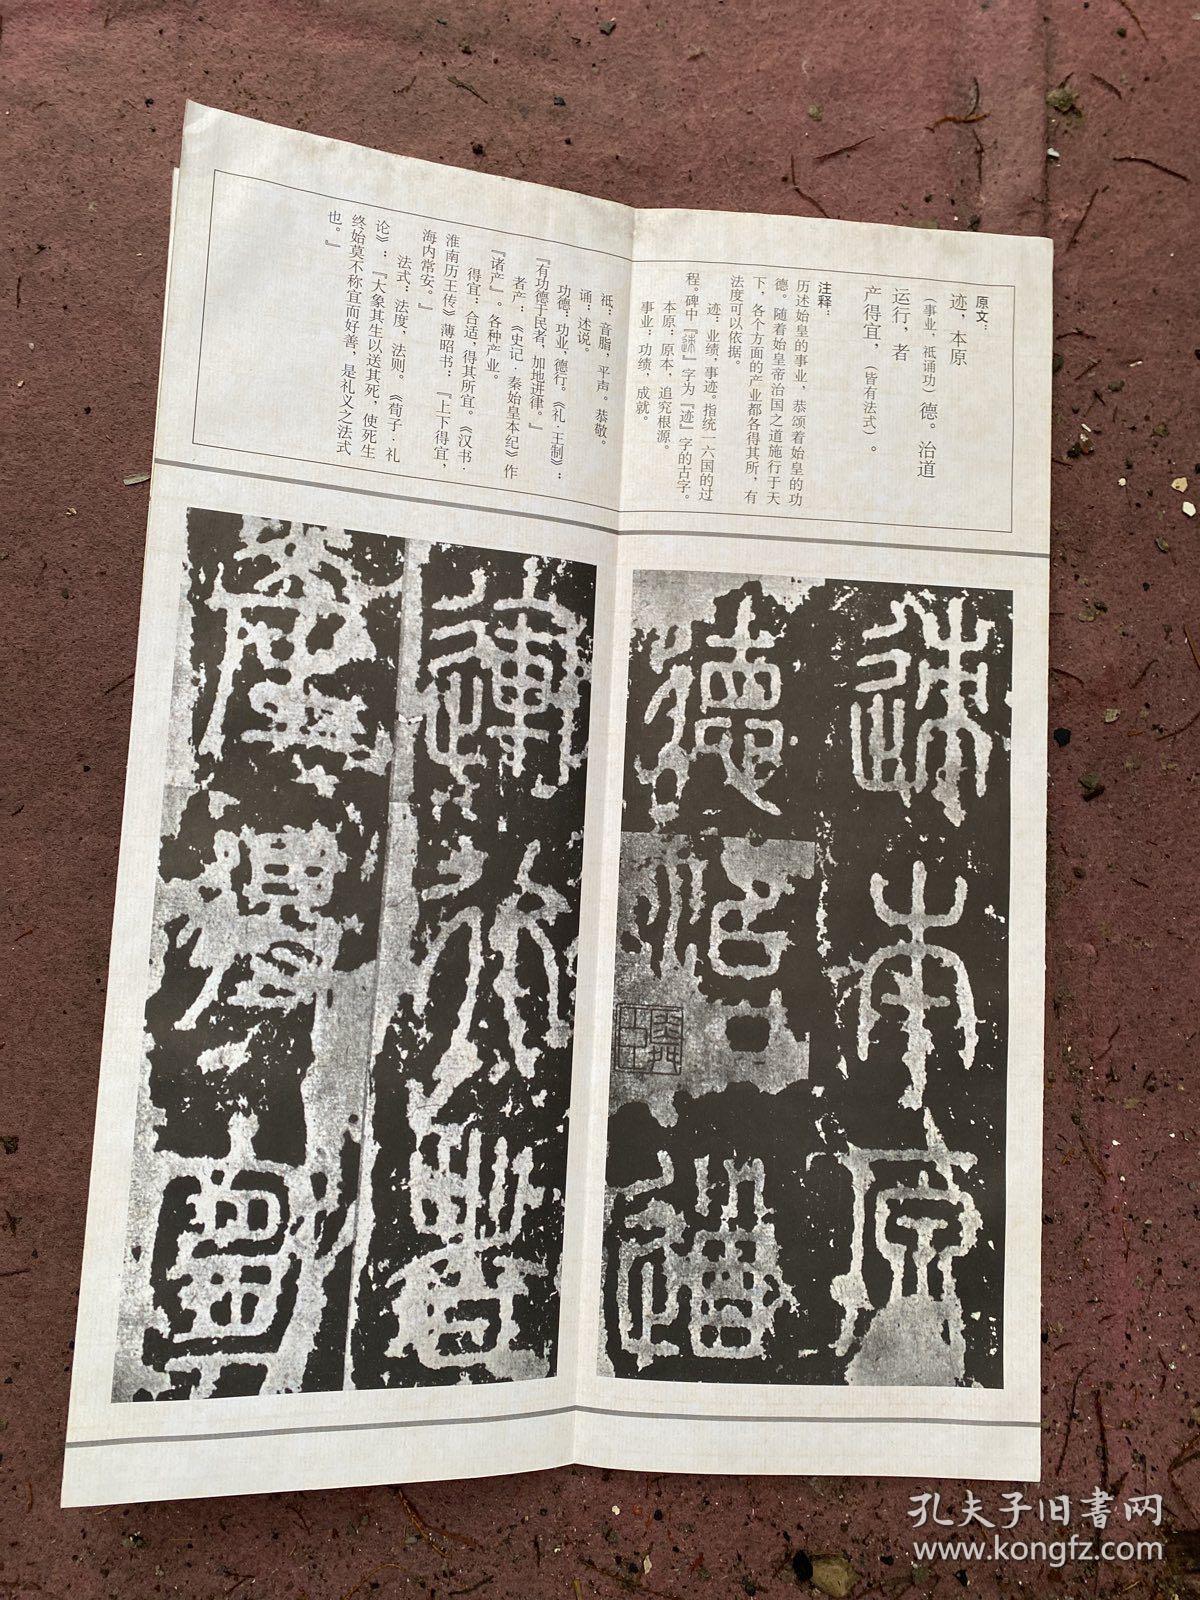 原文：
迹，本原
（事业，祗诵功）德。治道
运行，者
产得宜，（皆有法式）。
注释：
历述始皇的事业，恭颂着始皇的功
德。随着始皇帝治国之道施行于天
下，各个方面的产业都各得其所，有
法度可以依据。
迹：业绩，事迹。指统一六国的过
程。碑中『𨒪』字为『迹』字的古字。
本原：原本，追究根源。
事业：功绩，成就。
祗：音脂，平声。恭敬。
诵：述说。
功德：功业，德行。《礼·王制》：
『有功德于民者，加地进律。』
者产：《史记·秦始皇本纪》作
『诸产』。各种产业。
得宜：合适，得其所宜。《汉书·
淮南历王传》薄昭书：『上下得宜，
海内常安。』
法式：法度，法则。《荀子·礼
论》：『大象其生以送其死，使死生
终始莫不称宜而好善，是礼义之法式
也。』
𨒪本原
德治道
運行者
產得宜
孔夫子旧書网
www.kongfz.com